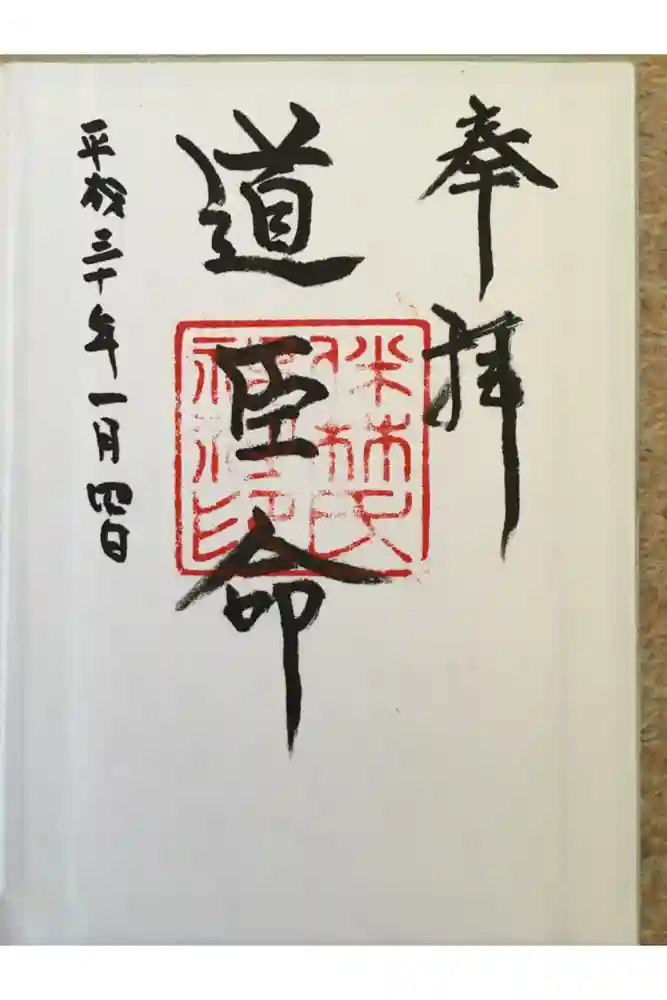 奉拝
道臣命
伴林氏
神社印
平成三十年一月四日